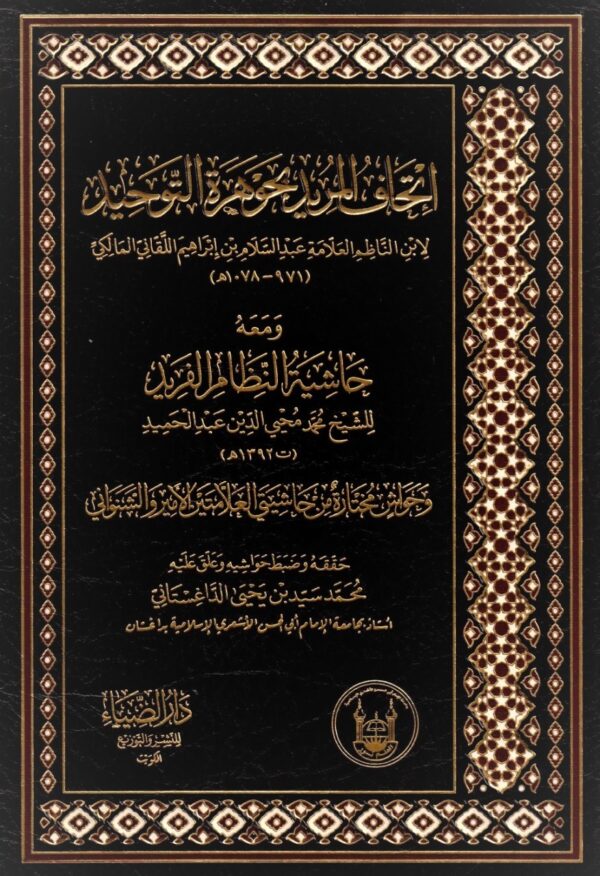 إتحاف المريد بجوهرة التوحيد
لابن الناظم العلامة عبد السلام بن إبراهيم اللقاني المالكي
(٩٧١ - ١٠٧٨هـ)
ومعه
حاشية النظام الفريد
للشيخ محمد محيي الدين عبد الحميد
(ت ١٣٩٢هـ)
وحواش مختارة من حاشيتي العلامتين الأمير والشنواني
حققه وضبط حواشيه وعلق عليه
محمد سيد بن يحيى الداغستاني
أستاذ بجامعة الإمام أبي الحسن الأشعري الإسلامية بداغستان
دار الضياء
للنشر والتوزيع
الكويت